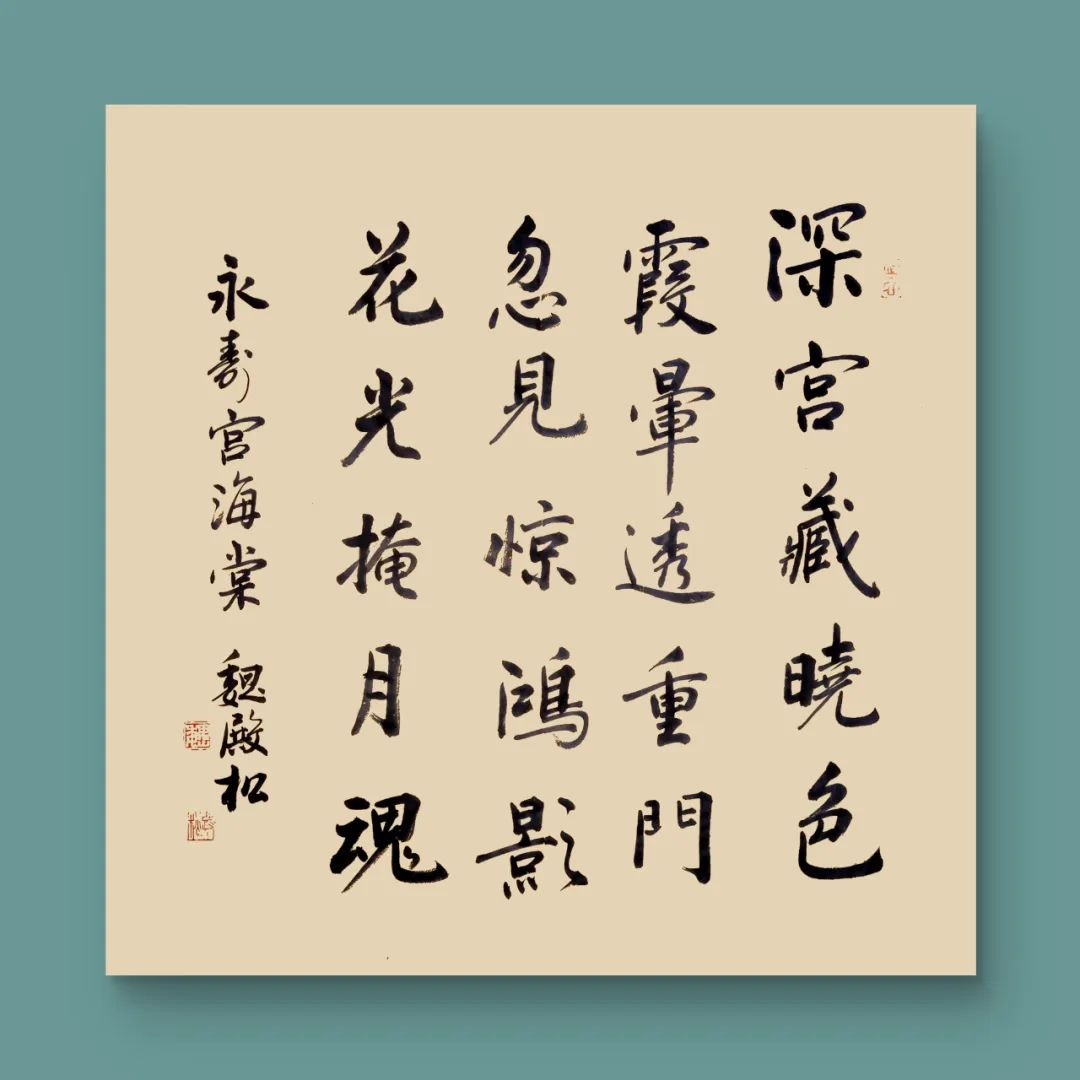 深宫藏曉色
霞暈透重門
忽見惊鴻影
花光掩月魂
永寿宫海棠 魏殿松